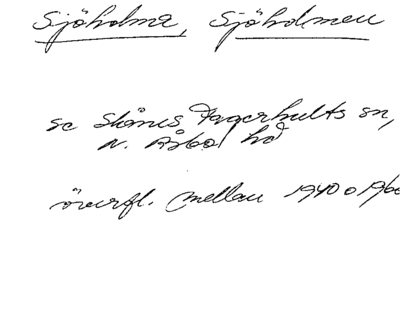 Sjöholma, Sjöholmen
se Skånes Fagerhults sn,
N. Åsbo hd
överfl. mellan 1940 o 1960